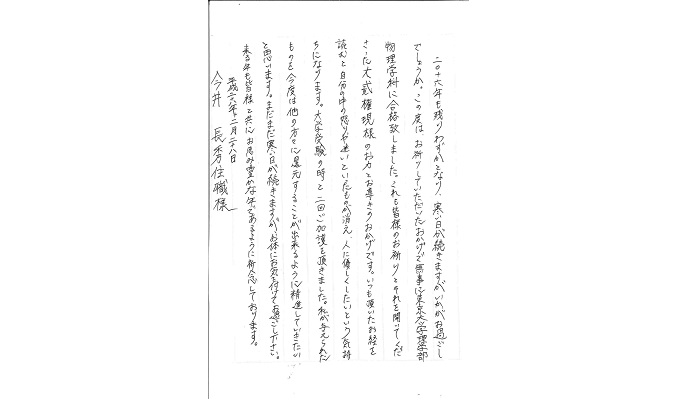 二〇十六年も残りわずかとなり、寒い日が続きますがいかがお過ごし
でしょうか。この度は、お祈りしていただいたおかげで無事に東京大学理学部
物理学科に合格致しました。これも皆様のお祈りとそれを聞いてくだ
さった大威権現様のお力とお導きのおかげです。いつも頂いたお経を
読むと自分の中の怒りや迷いといたものが消え、人に優しくしたいという気持
ちになります。大学受験の時と二回ご加護を頂きました。私が与えられた
ものを今度は他の方々に還元することが出来るように精進していきたい
と思います。まだまだ寒い日が続きますが、お体にお気を付けてお過ごしください。
来る年も皆様と共にお恵み豊かな年であるように祈念しております。
平成二八年十二月二十八日
今井 長秀住職様